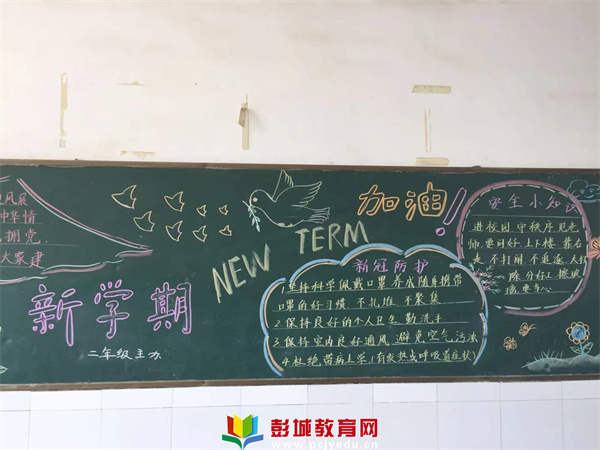 风展
中华情
拥党
大家建
新学期
二年级主办
NEW TERM
加油!
新冠防护
1.坚持科学佩戴口罩 养成随身携带
口罩的好习惯 不扎堆 不聚集
2.保持良好的个人卫生 勤洗手
3.保持室内良好通风 避免空气污浊
4.杜绝带病上学(有发热或呼吸道症状)
安全小知识
进校园 守秩序 见老
师 要问好 上下楼 靠右
走 不打闹 不追逐 人
除分好工 擦玻
璃 要当心
彭城教育网
www.pcjyedu.cn